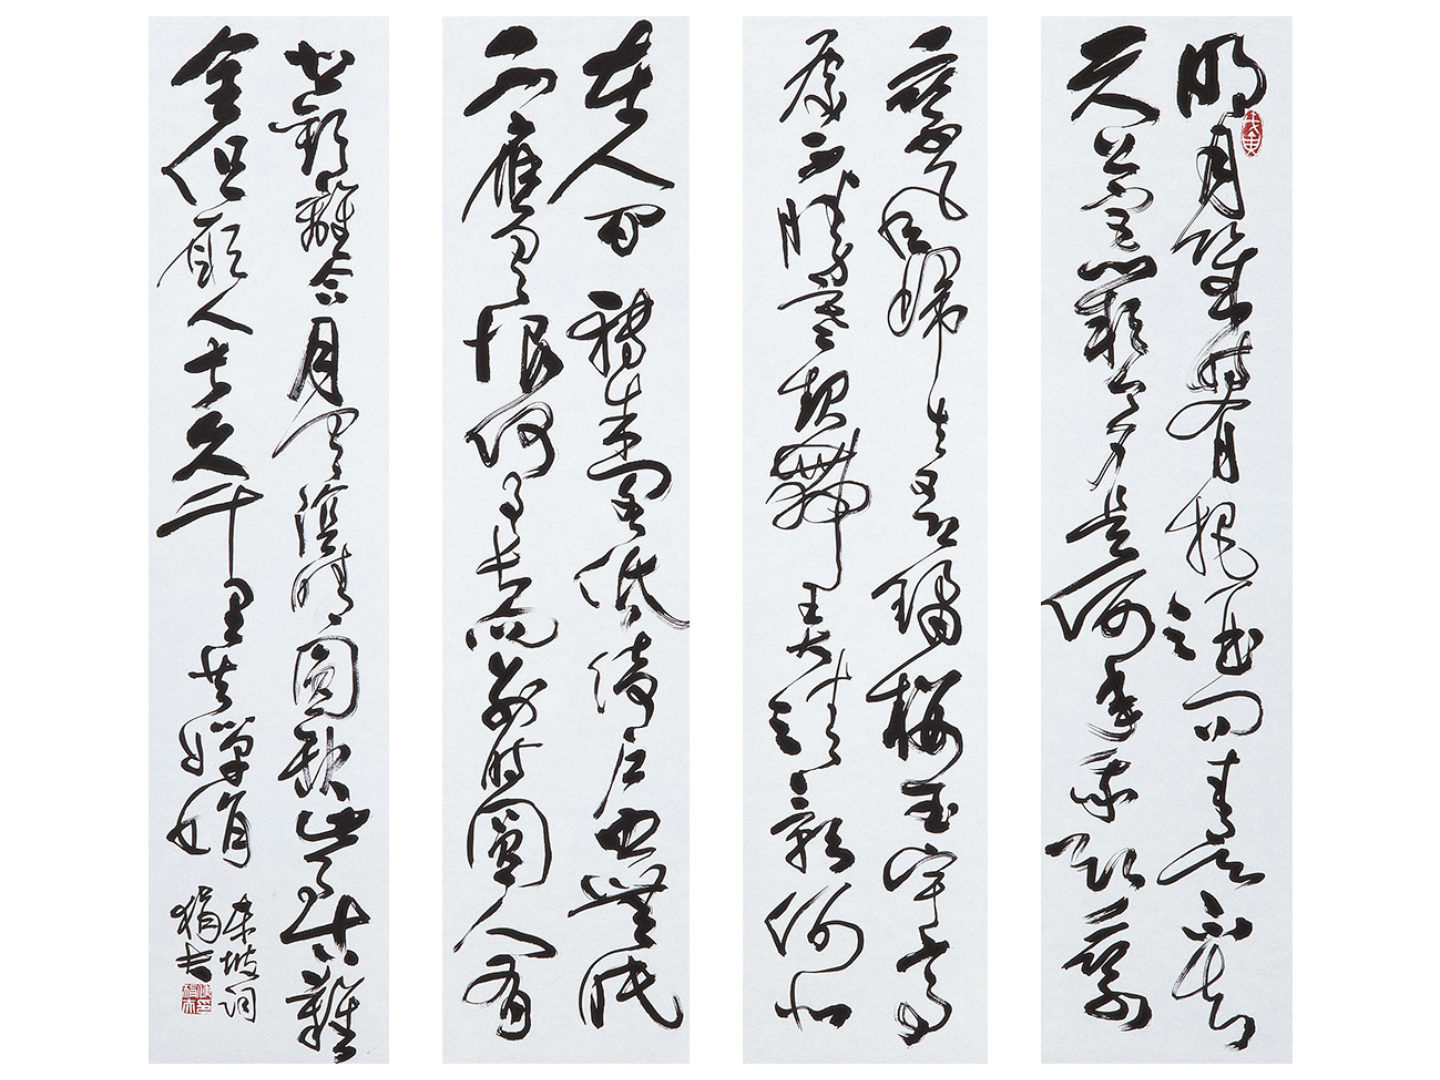 明月幾時有把酒问青天不知
天上宮闕今夕是何年我欲乘
風歸去又恐瓊樓玉宇高
處不勝寒起舞弄清影何似
在人间轉朱閣低綺户照無眠
不應有恨何事長向別時圓人有
悲歡離合月有陰晴圓缺此事古難
全但願人長久千里共嬋娟
東坡詞